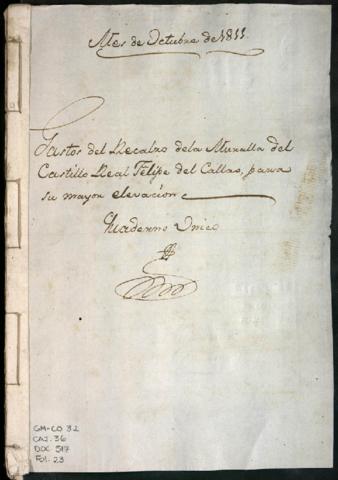 Mes de Octubre de 1811.
Gastos del Recalzo dela Muralla del
Castillo Real Felipe del Callao, para
su mayor elevacion
Quaderno Unico
GM-CO 82
CAJ. 36
DOC 517
Fol. 23